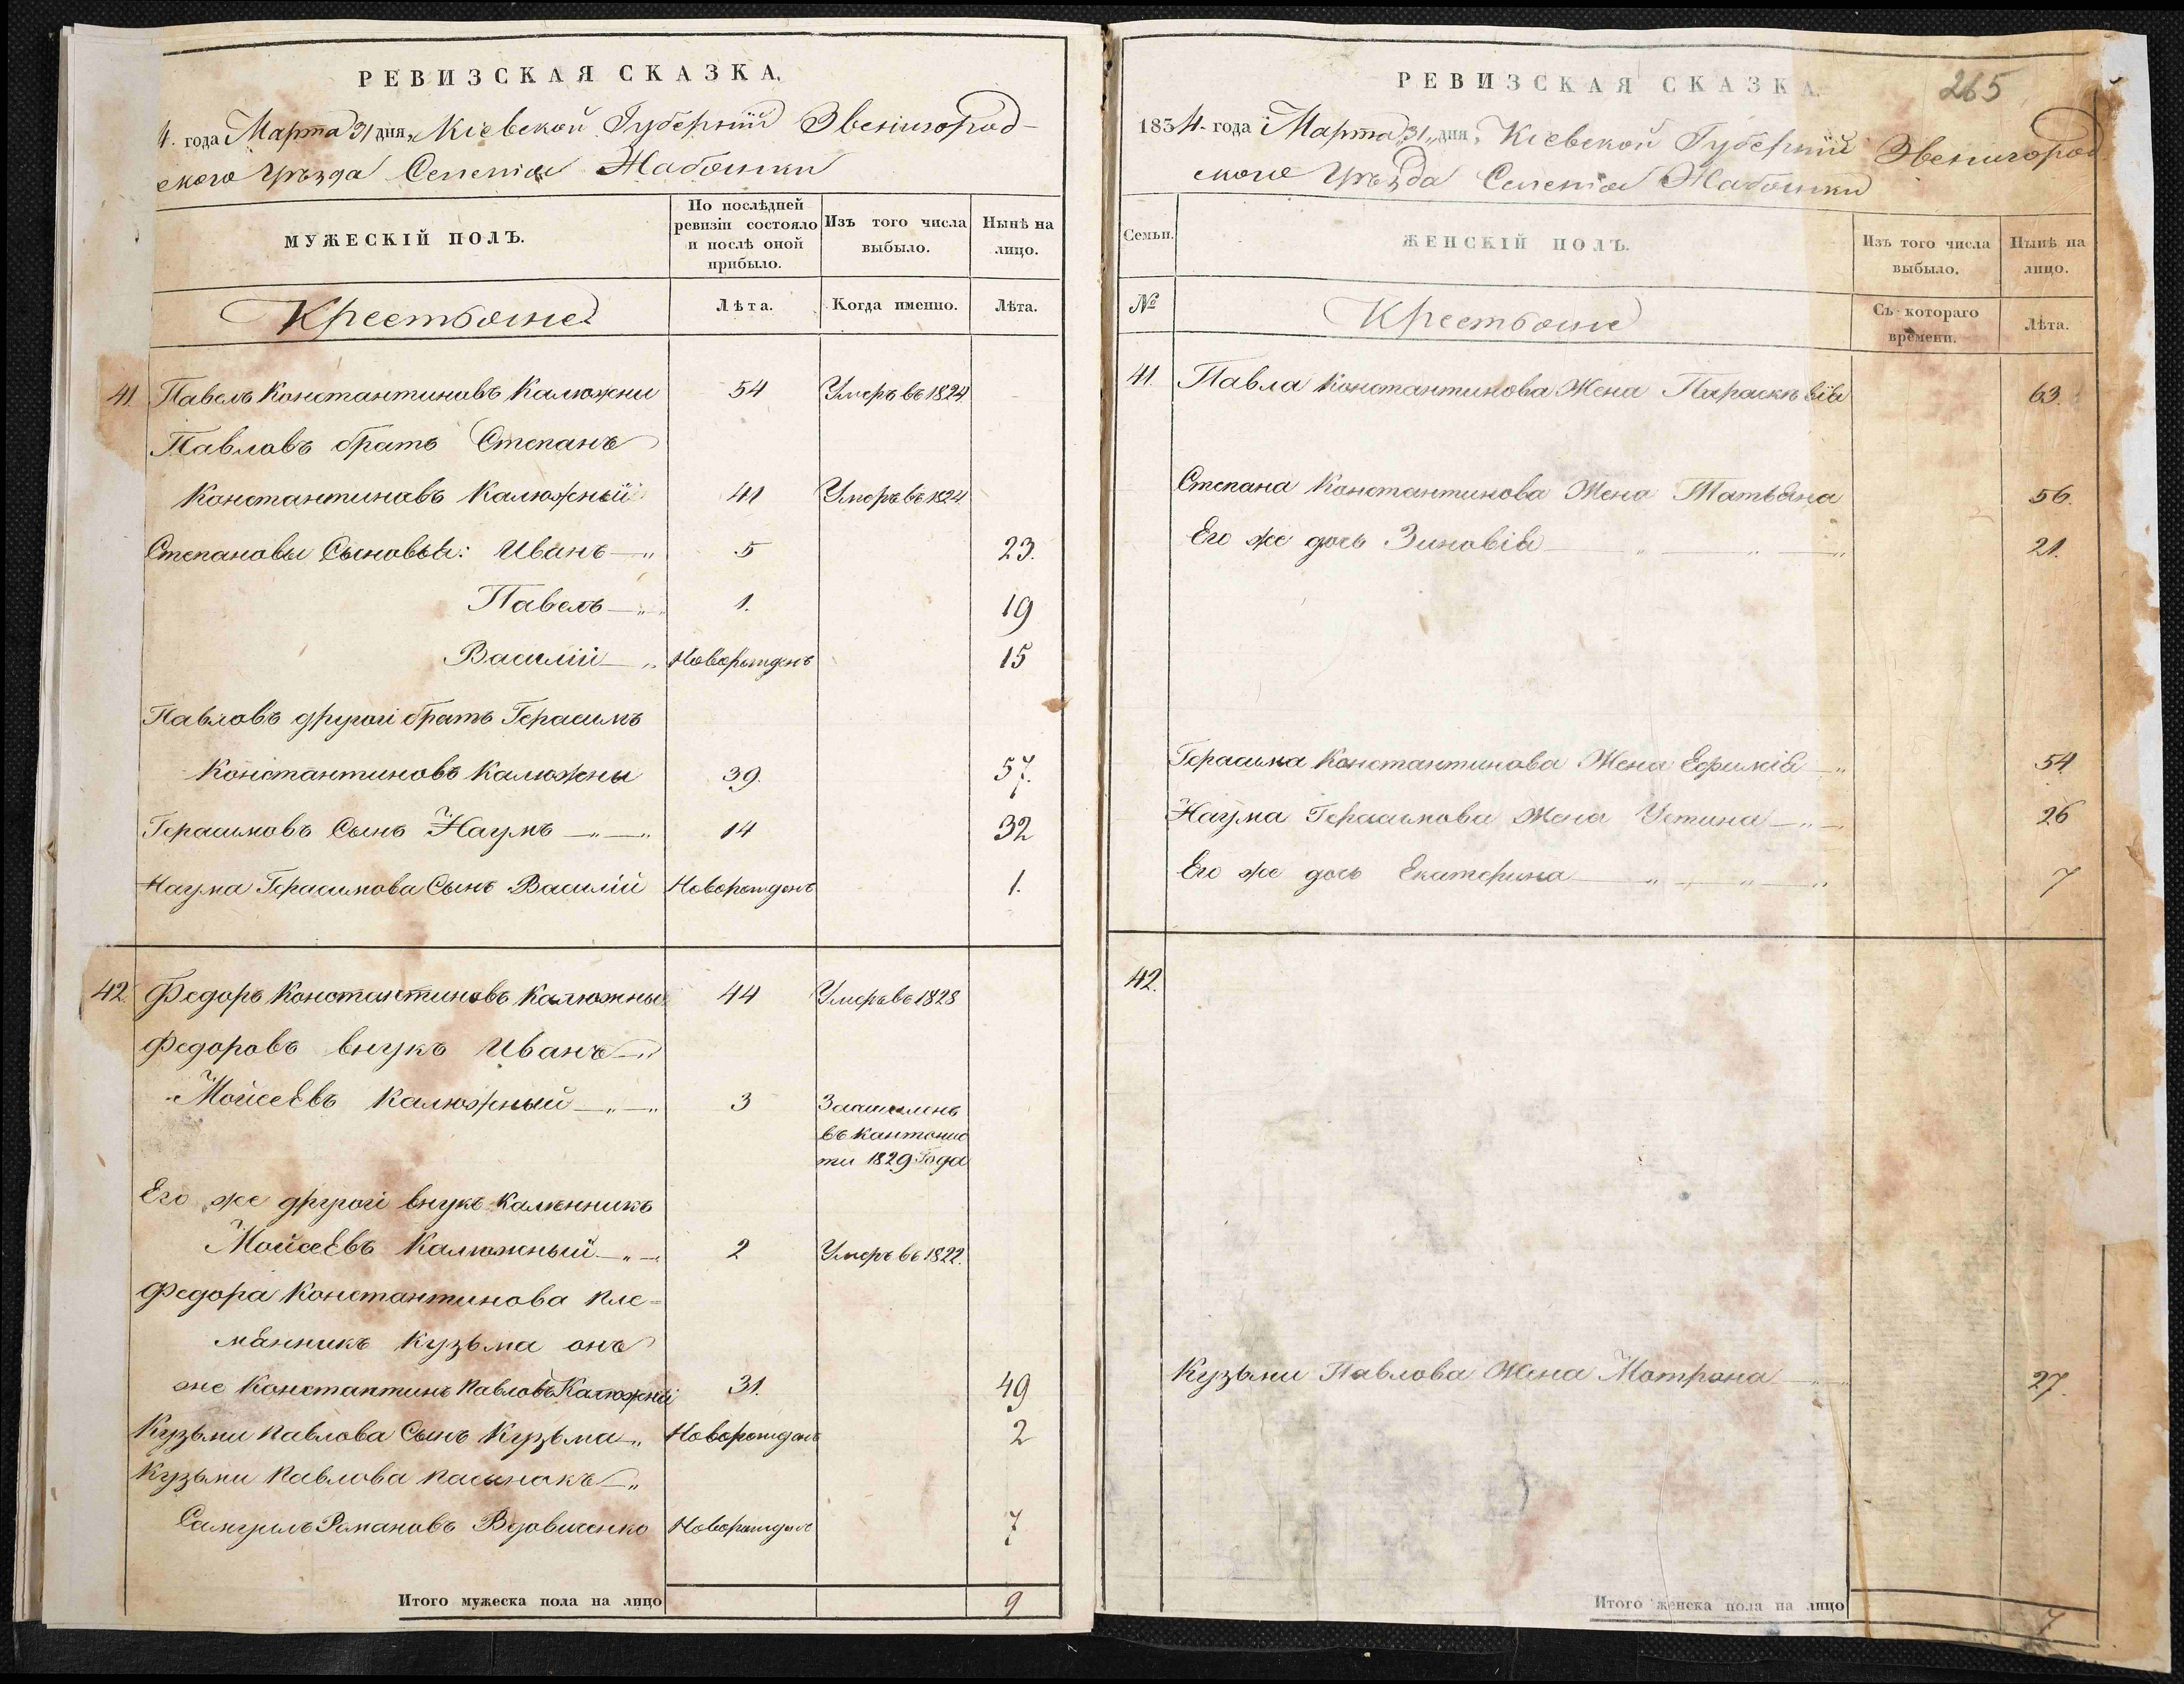 РЕВИЗСКАЯ СКАЗКА.
4. года Марта 31 дня, Кіевской Губерніи Звенигород-
ского Уѣзда Селенія Жабошки
МУЖЕСКІЙ ПОЛЪ.
По послѣдней ревизіи состояло и послѣ оной прибыло.
Изъ того числа выбыло.
Нынѣ на лицо.
Крестьяне
Лѣта.
Когда именно.
Лѣта.
41. Павелъ Константиновъ Калюжни 54 Умеръ въ 1824
Павловъ братъ Степанъ
Константиновъ Калюжный 41 Умеръ въ 1824
Степановы Сыновья: Иванъ —„ 5 23.
Павелъ —„ 1. 19
Василій —„ Новорожденъ 15
Павловъ другоі братъ Герасимъ
Константиновъ Калюжны 39. 57.
Герасимовъ Сынъ Наумъ —„—„ 14 32
Наума Герасимова Сынъ Василій Новорожденъ 1.
42. Федоръ Константиновъ Калюжны 44 Умеръ въ 1828
Федоровъ внукъ Иванъ —„
Моисеевъ Калюжный —„—„ 3
въ кантонис
ти 1829 года
Его же другоі внукъ Калѣнникъ
Моисеевъ Калюжный —„— 2 Умеръ въ 1822.
Федора Константинова пле=
мянникъ Кузьма онъ
же Константинъ Павловъ Калюжныі 31. 49
Кузьми Павлова Сынъ Кузьма „ Новорожденъ 2
Кузьми Павлова пасынокъ —„
Самуилъ Романовъ Вдовиченко Новорожденъ 7
Итого мужеска пола на лицо 9
265
РЕВИЗСКАЯ СКАЗКА.
1834. года Марта „31„ дня, Кіевской Губерніи Звенигород-
ского Уѣзда Селенія Жабошки
Семьи.
ЖЕНСКІЙ ПОЛЪ.
Изъ того числа выбыло.
Нынѣ на лицо.
№
Крестьяне
Съ котораго времени.
Лѣта.
41. Павла Константинова Жена Параскѣвія 63.
Степана Константинова Жена Татьяна 56.
Его же дочь Зиновія —„—„—„ 21.
Герасима Константинова Жена Ефимія —„ 54
Наума Герасимова Жена Устина —„— 26
Его же дочь Екатерина —„—„—„ 7
42.
Кузьми Павлова Жена Мотрона 27.
Итого женска пола на лицо 7